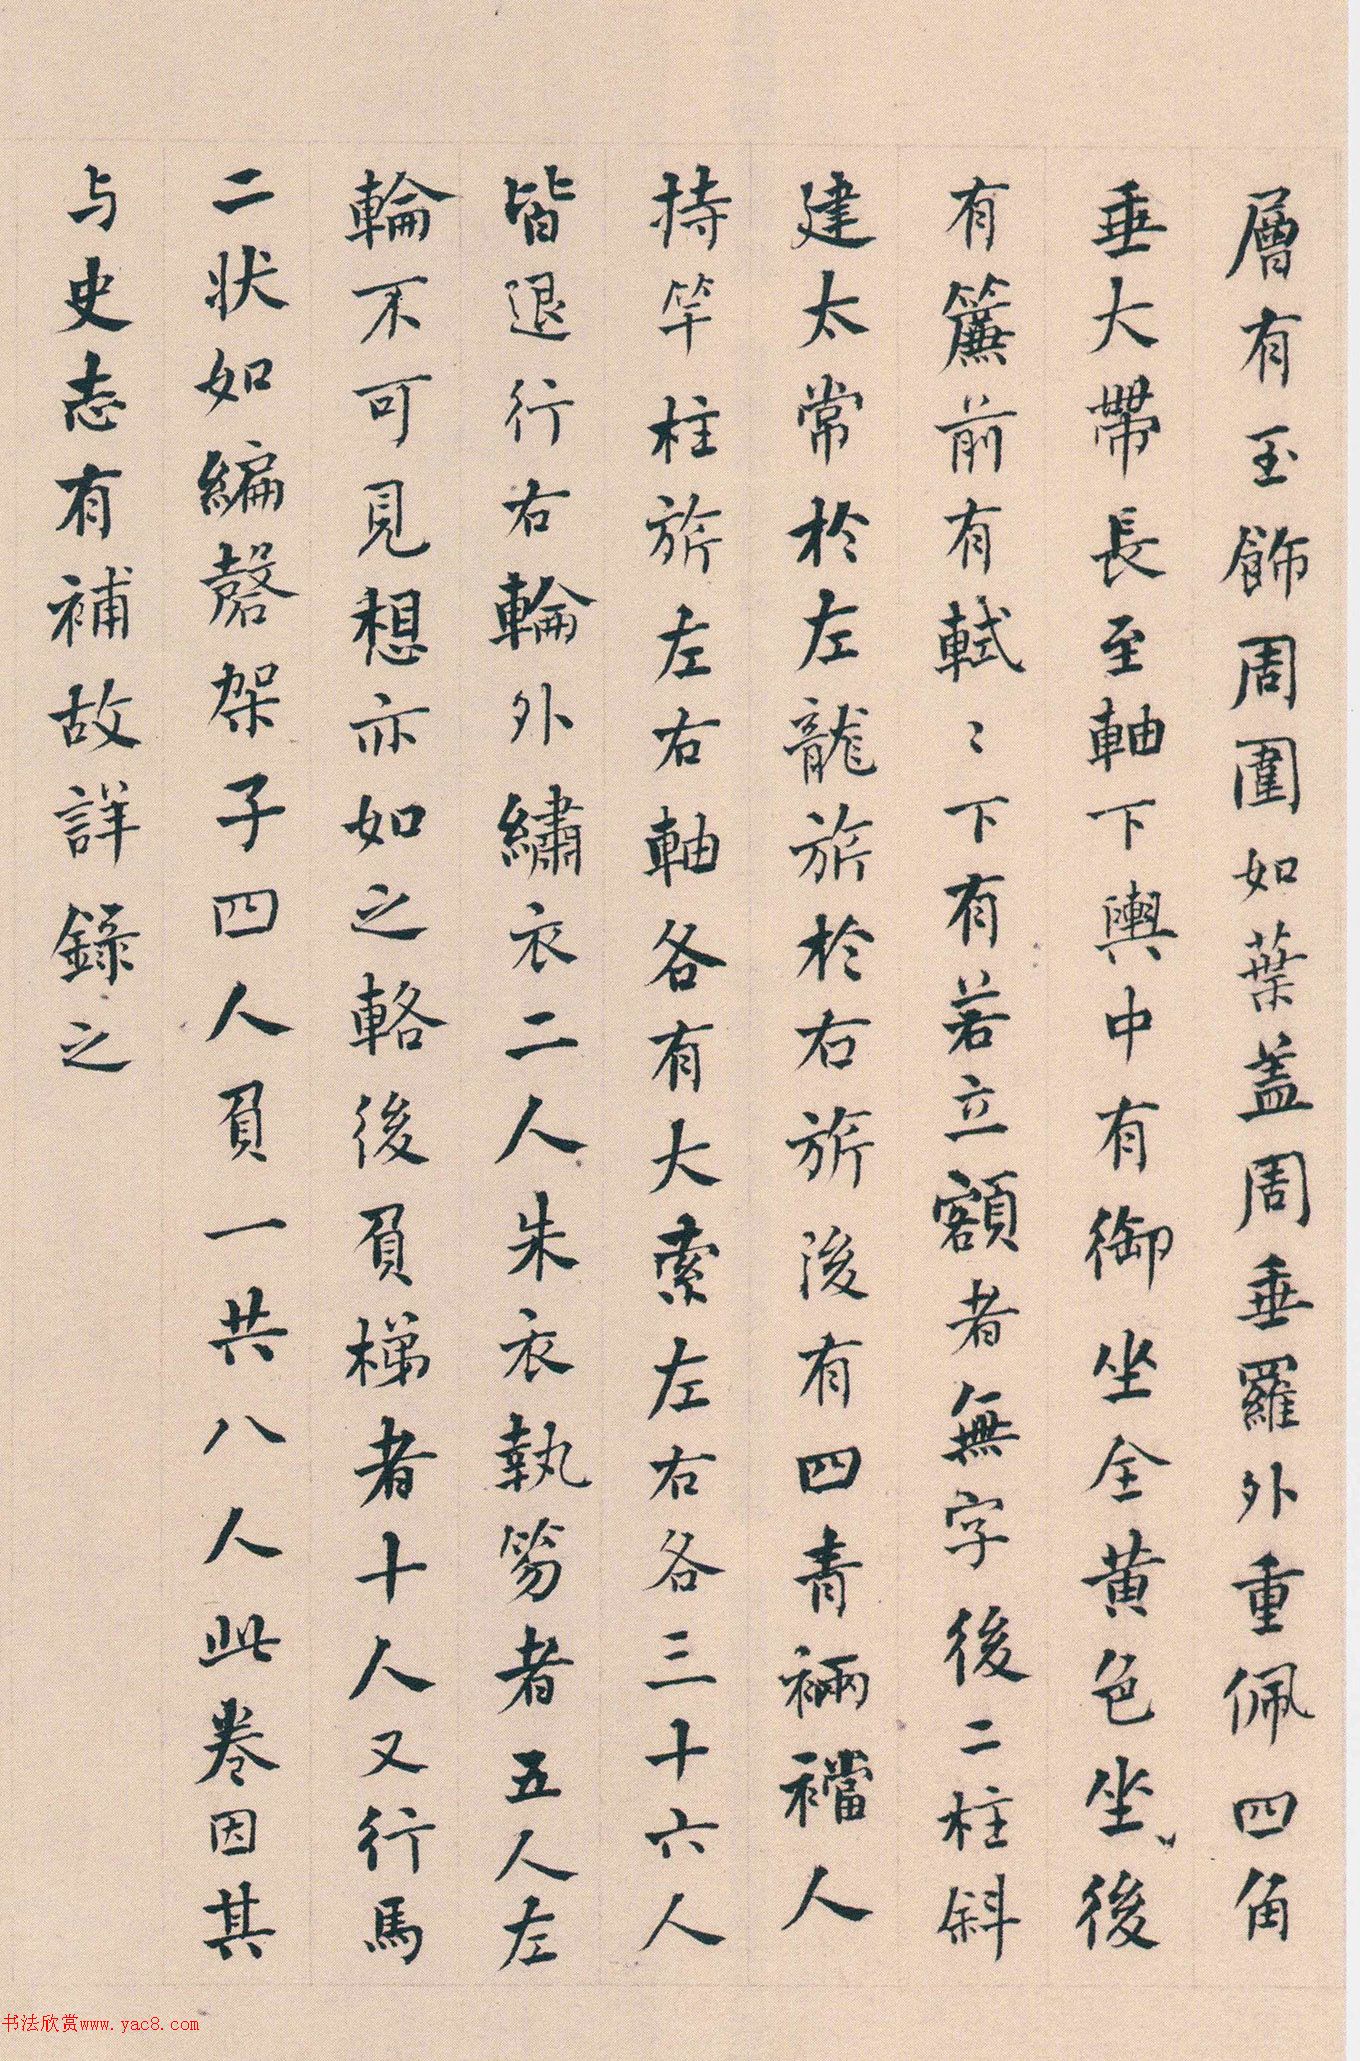 層有玉飾周圍如葉蓋周垂羅外重佩四角
垂大帶長至軸下輿中有御坐全黄色坐後
有簾前有軾〻下有若立額者無字後二柱斜
建太常於左龍旂於右旂後有四青裲襠人
持竿柱旂左右軸各有大索左右各三十六人
皆退行右輪外繡衣二人朱衣執笏者五人左
輪不可見想亦如之輅後負梯者十人又行馬
二状如編磬架子四人負一共八人此卷因其
与史志有補故詳錄之
书法欣赏www.yac8.com